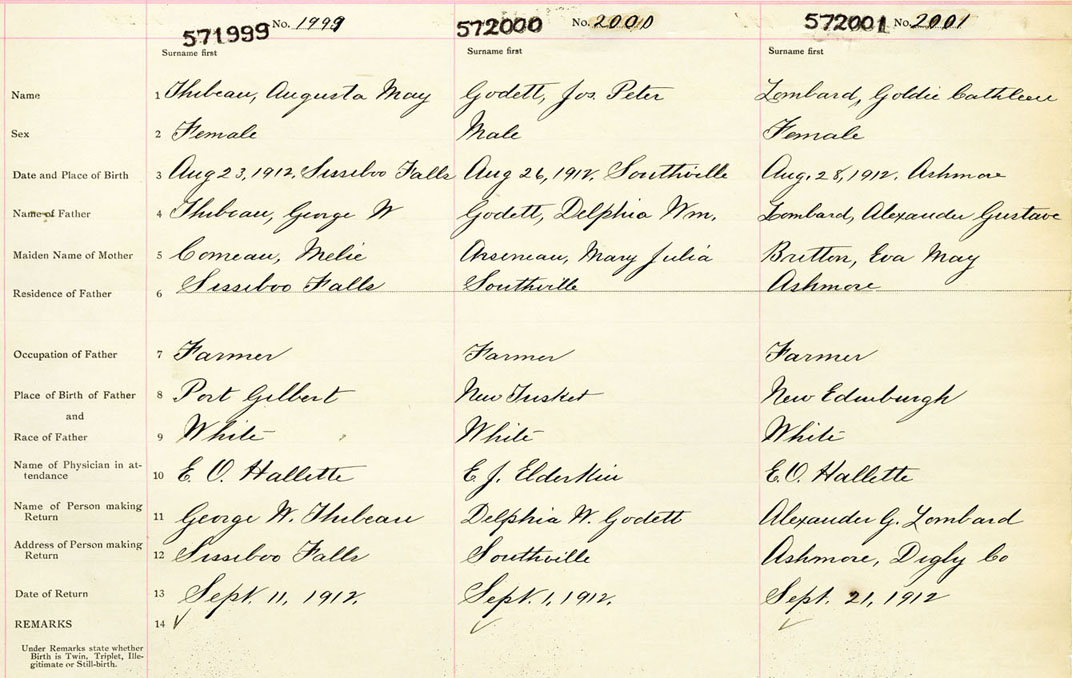 571999 No. 1999 572000 No. 2000 572001 No. 2001
Surname first Surname first Surname first
Name 1 Thibeau, Augusta May Godett, Jos. Peter Lombard, Goldie Cathleen
Sex 2 Female Male Female
Date and Place of Birth 3 Aug 23, 1912, Sissiboo Falls Aug 26, 1912. Southville Aug. 28, 1912. Ashmore
Name of Father 4 Thibeau, George W Godett, Delphia Wm. Lombard, Alexander Gustave
Maiden Name of Mother 5 Comeau, Melie Arseneau, Mary Julia Britton, Eva May
Residence of Father 6 Sissiboo Falls Southville Ashmore
Occupation of Father 7 Farmer Farmer Farmer
Place of Birth of Father 8 Port Gilbert New Tusket New Edinburgh
and
Race of Father 9 White White White
Name of Physician in at-
tendance 10 E. O. Hallette E. J. Elderkin E. O. Hallette
Name of Person making
Return 11 George W. Thibeau Delphia W. Godett Alexander G. Lombard
Address of Person making
Return 12 Sissiboo Falls Southville Ashmore, Digby Co
Date of Return 13 Sept. 11, 1912. Sept. 1, 1912. Sept. 21, 1912
REMARKS 14
Under Remarks state whether
Birth is Twin, Triplet, Ille-
gitimate or Still-birth.